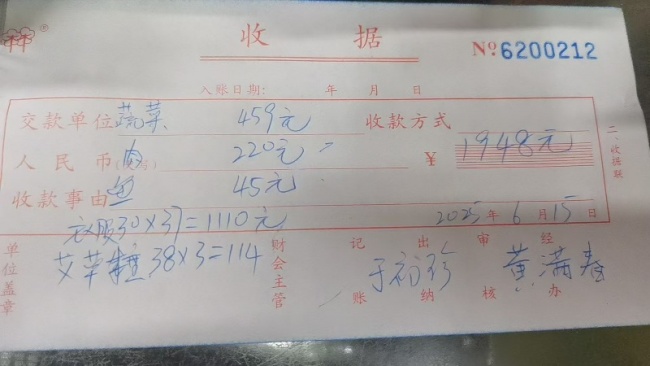 收 据
№ 6200212
入账日期: 年 月 日
交款单位 蔬菜 459元 收款方式
人民币 肉 220元 ¥ 1948元
收款事由 鱼 45元
衣服30×37=1110元 2025年6月15日
艾草粿38×3=114
财会主管 记账 出纳 审核 经办
于初珍 黄满春
单位盖章
二.收据联